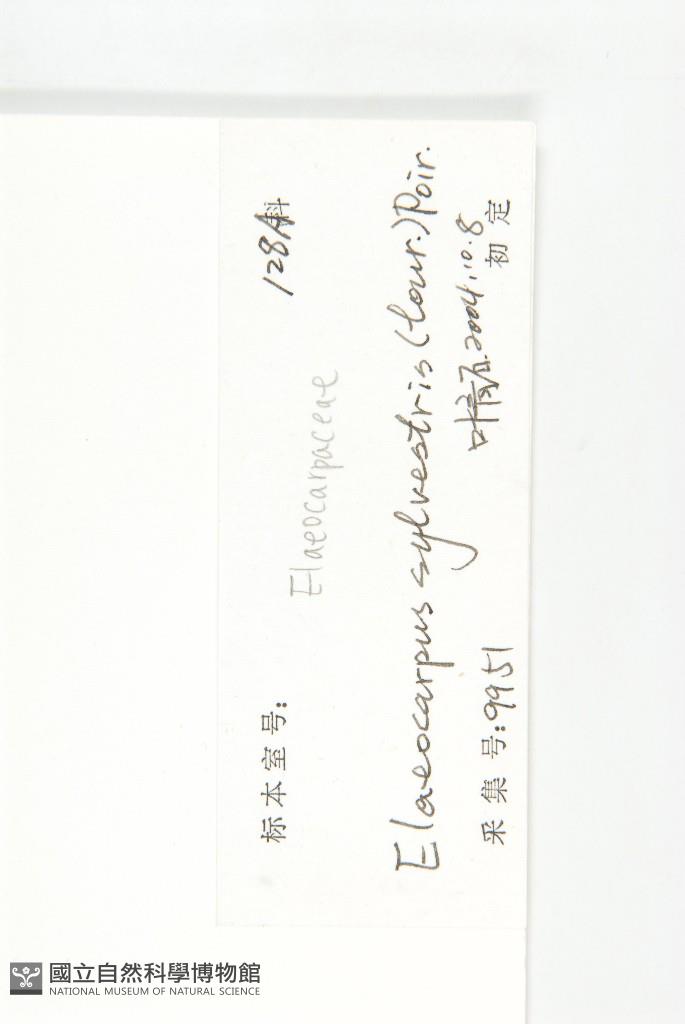 标本室号: 128A科
Elaeocarpaceae
Elaeocarpus sylvestris (Lour.) Poir.
2004.10.8
采集号:9951 初定
國立自然科學博物館
NATIONAL MUSEUM OF NATURAL SCIENCE